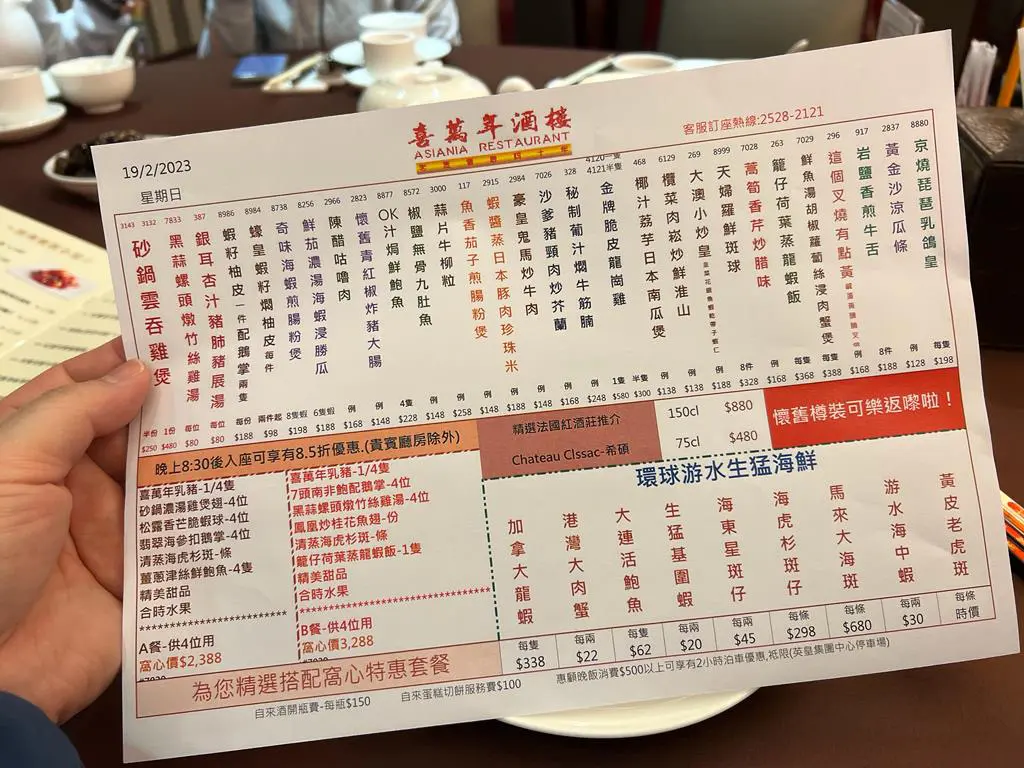 19/2/2023
星期日
喜萬年酒樓
ASIANIA RESTAURANT
客服訂座熱線:2528-2121
8880 京燒琵琶乳鴿皇 每隻 $198
2837 黃金沙涼瓜條 例 $128
917 岩鹽香煎牛舌 8件 $168
296 這個叉燒有點黃 例 $168
7029 鮮魚湯胡椒蘿蔔絲浸肉蟹煲 每隻 $388
263 籠仔荷葉蒸龍蝦飯 每隻 $368
7028 蒿筍香芹炒腊味 例 $168
8999 天婦羅鮮斑球 8件 $328
269 大澳小炒皇 例 $188
6129 欖菜肉崧炒鮮淮山 例 $138
468 椰汁荔芋日本南瓜煲 例 $138
4120一隻
4121半隻
金牌脆皮龍崗雞 1隻 $580 半隻 $300
328 秘制葡汁燜牛筋腩 例 $248
7026 沙爹豬頸肉炒芥蘭 例 $168
2984 豪皇鬼馬炒牛肉 例 $148
2915 蝦醬蒸日本豚肉珍珠米 例 $188
117 魚香茄子煎腸粉煲 例 $148
3000 蒜片牛柳粒 例 $258
8572 椒鹽無骨九肚魚 例 $148
8877 OK汁焗鮮鮑魚 4隻 $228
2823 懷舊青紅椒炸豬大腸 例 $148
2966 陳醋咕嚕肉 例 $168
8256 鮮茄濃湯海蝦浸勝瓜 6隻蝦 $188
8738 奇味海蝦煎腸粉煲 8隻蝦 $198
8984 蠔皇蝦籽燜柚皮 每件 兩件起 $98
8986 蝦籽柚皮一件配鵝掌兩隻 每份 $188
387 銀耳杏汁豬肺豬展湯 每位 $80
7833 黑蒜螺頭燉竹絲雞湯 每位 $80
3143 3132 砂鍋雲吞雞煲 半份 $250 1份 $480
晚上8:30後入座可享有8.5折優惠.(貴賓廳房除外)
喜萬年乳豬-1/4隻
砂鍋濃湯雞煲翅-4位
松露香芒脆蝦球-4位
翡翠海參扣鵝掌-4位
清蒸海虎杉斑-條
薑蔥津絲鮮鮑魚-4隻
精美甜品
合時水果
A餐-供4位用
窩心價$2,388
喜萬年乳豬-1/4隻
7頭南非鮑配鵝掌-4位
黑蒜螺頭燉竹絲雞湯-4位
鳳凰炒桂花魚翅-份
清蒸海虎杉斑-條
籠仔荷葉蒸龍蝦飯-1隻
精美甜品
合時水果
B餐-供4位用
窩心價3,288
為您精選搭配窩心特惠套餐
精選法國紅酒莊推介
Chateau Clssac-希碩
150cl $880
75cl $480
懷舊樽裝可樂返嚟啦！
環球游水生猛海鮮
加拿大龍蝦 每隻 $338
港灣大肉蟹 每兩 $22
大連活鮑魚 每隻 $62
生猛基圍蝦 每兩 $20
海東星斑仔 每兩 $45
海虎杉斑仔 每條 $298
馬來大海斑 每條 $680
游水海中蝦 每兩 $30
黃皮老虎斑 每條 時價
自來酒開瓶費-每瓶$150
自來蛋糕切餅服務費$100
惠顧晚飯消費$500以上可享有2小時泊車優惠,祗限(英皇集團中心停車場)